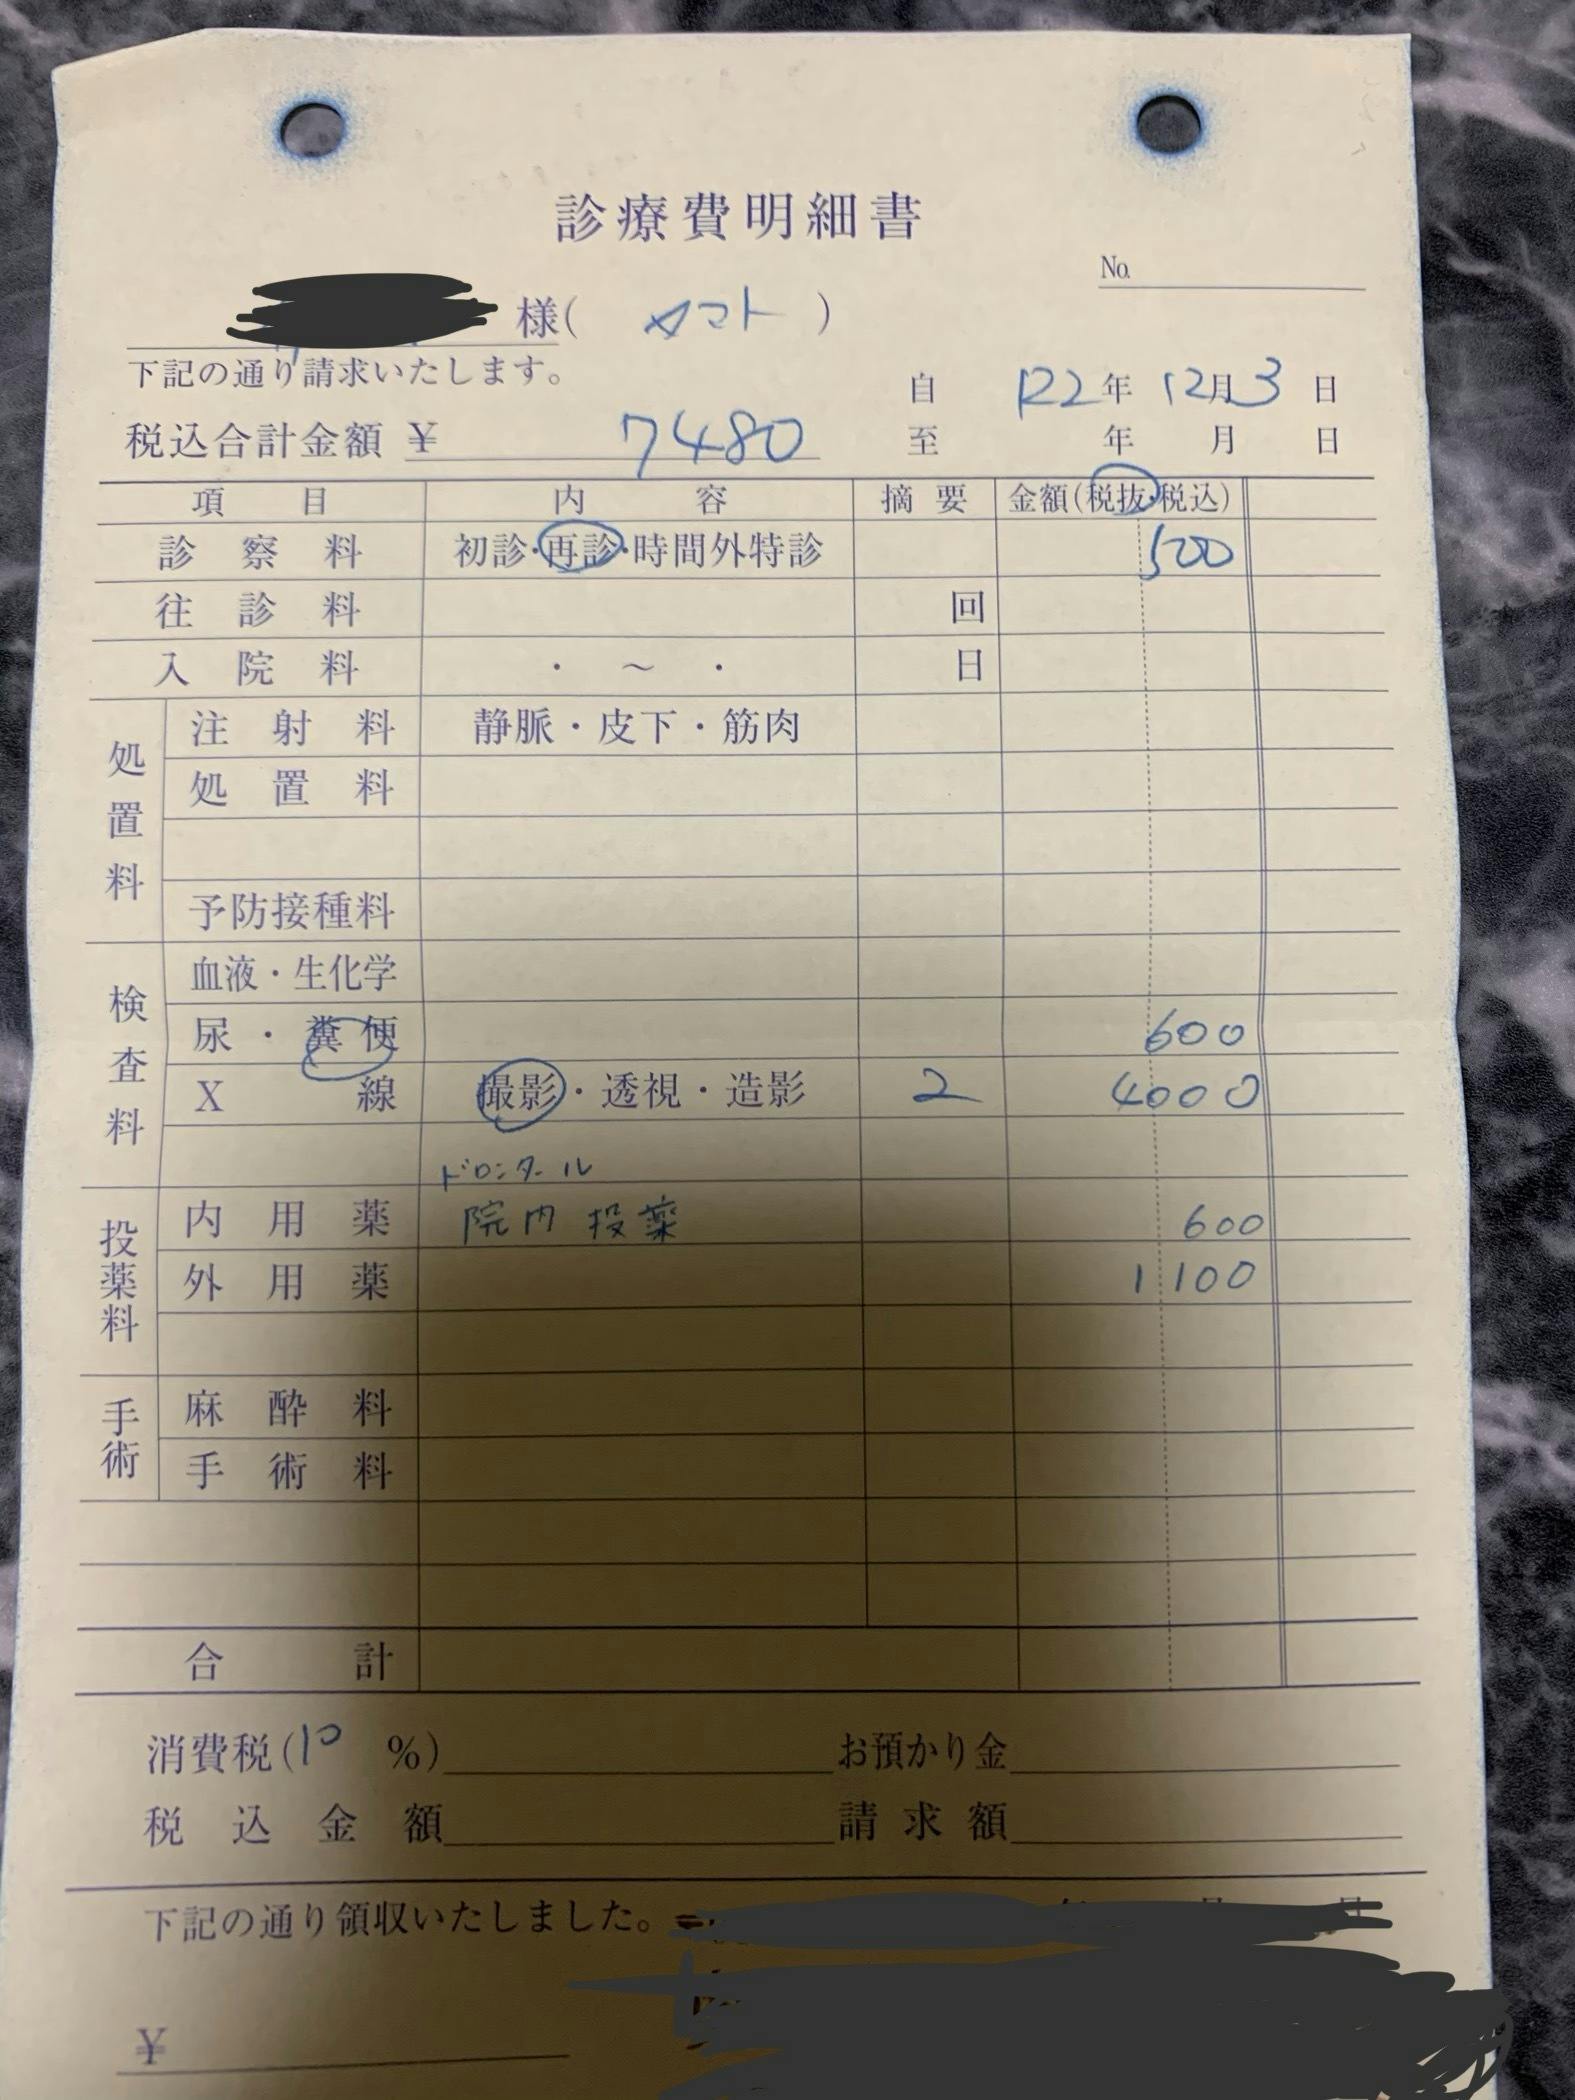 診療費明細書
No.
様( ヤマト )
下記の通り請求いたします。
自 R2年 12月 3日
税込合計金額 ¥ 7480
至 年 月 日
項目 内容 摘要 金額(税抜・税込)
診察料 初診・再診・時間外特診 500
往診料 回
入院料 ・ ～ ・ 日
処置料
注射料 静脈・皮下・筋肉
処置料
予防接種料
検査料
血液・生化学
尿・糞便 600
X線 撮影・透視・造影 2 4000
ドロンタール
投薬料
内用薬 院内投薬 600
外用薬 1100
手術
麻酔料
手術料
合計
消費税(10 %) お預かり金
税込金額 請求額
下記の通り領収いたしました。
¥